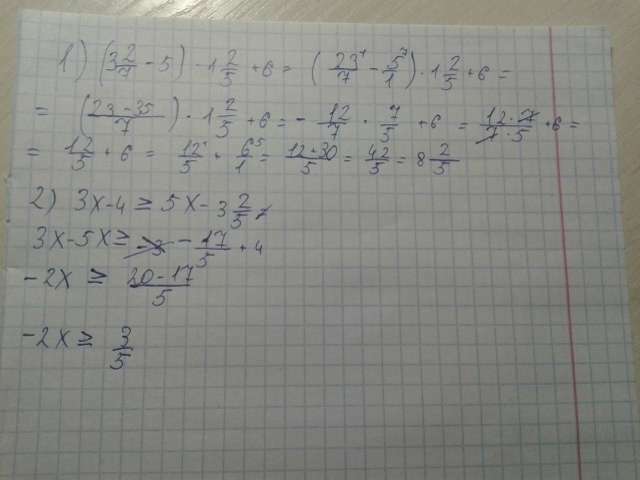 1) (3 2/7 - 5) · 1 2/5 + 6 = (23/7 - 5/1) · 1 2/5 + 6 =
= (23 - 35/7) · 1 2/5 + 6 = - 12/7 · 7/5 + 6 = 12 · 7/7 · 5 + 6 =
= 12/5 + 6 = 12/5 + 6/1 = 12 + 30/5 = 42/5 = 8 2/5
2) 3x - 4 ≥ 5x - 3 2/5
3x - 5x ≥ - 17/5 + 4
- 2x ≥ 20 - 17/5
- 2x ≥ 3/5